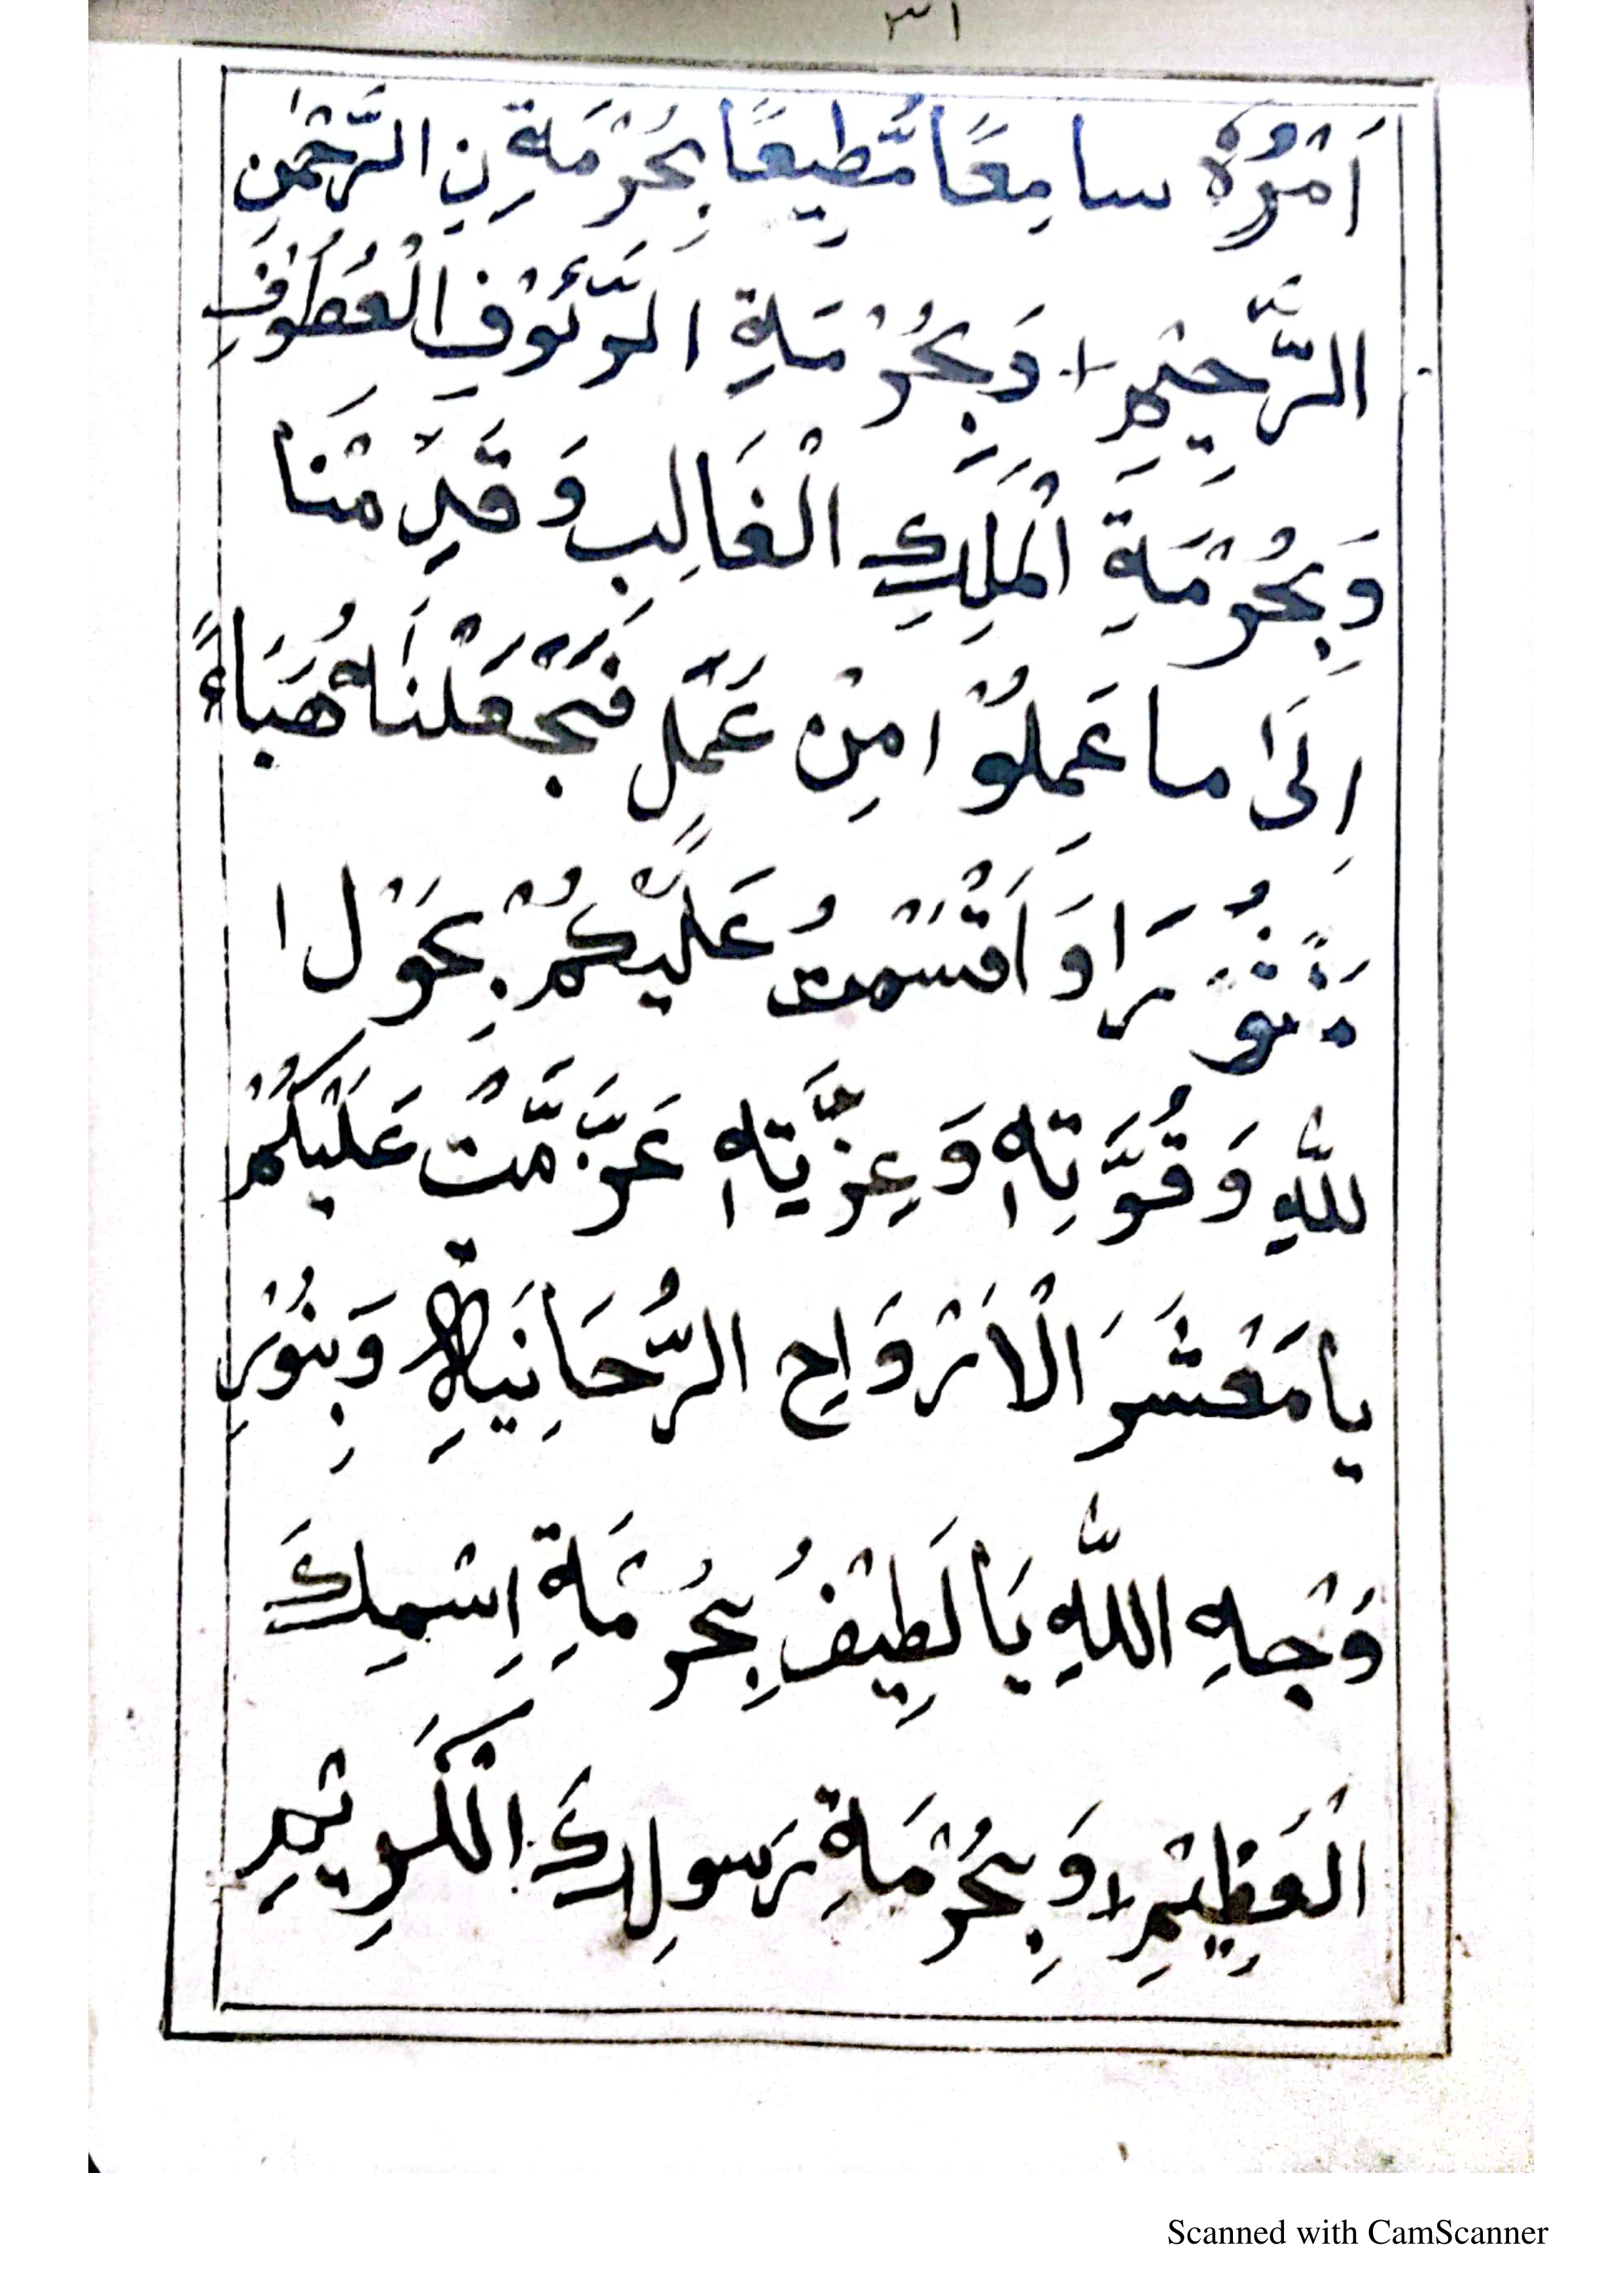 ٣١
اَمْرُهٗ سامِعًا مُّطِيعًا بِحُرْمَةِ نِ الرَّحْمٰنِ
الرَّحِيْمِ + وَبِحُرْمَةِ الرَّئُوْفِ الْعُطُوْفِ
وَبِحُرْمَةِ الْمَلِكِ الْغَالِبِ وَقَدِّمْنَا
اِلٰى ما عَمِلُوْا مِنْ عَمَلٍ فَجَعَلْنٰاهُ هَبَاءً
مَنْثُوْرًا وَ اَقْسَمْتُ عَلَيْكُمْ بِحَوْلِ ا
للّٰهِ وَ قُوَّتِهٖ وَ عِزَّيَتِهٖ عَزَّمَّتُ عَلَيْكُمْ
يا مَعْشَرَ الْاَرْوَاحِ الرُّحَانِيَةِ وَبِنُوْرِ
وَجْهِ اللّٰهِ يَا لَطِيْفُ بِحُرْمَةِ اِسْمِكَ
الْعَظِيْمِ + وَ بِحُرْمَةِ رَسولِكَ الْكَرِيْمِ
Scanned with CamScanner